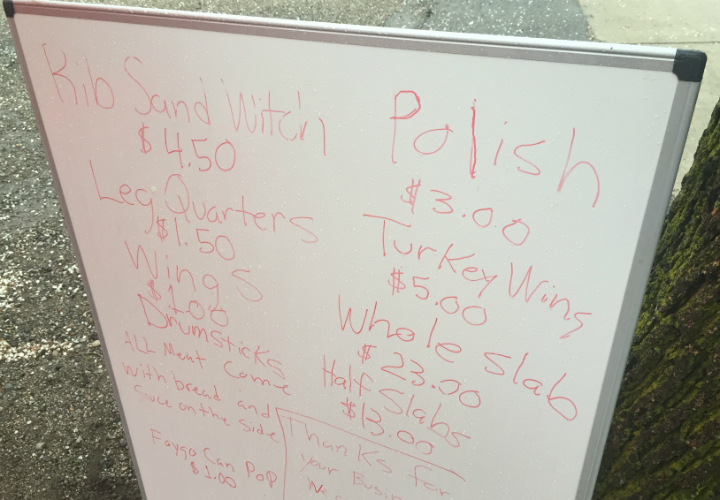 Rib Sand Witch
$4.50
Leg Quarters
$1.50
Wings
$1.00
Drumsticks
All Meat Come
with bread and
Suce on the side
Faygo Can Pop
$1.00
Polish
$3.00
Turkey Wing
$5.00
Whole Slab
$23.00
Half Slabs
$13.00
Thanks for
your